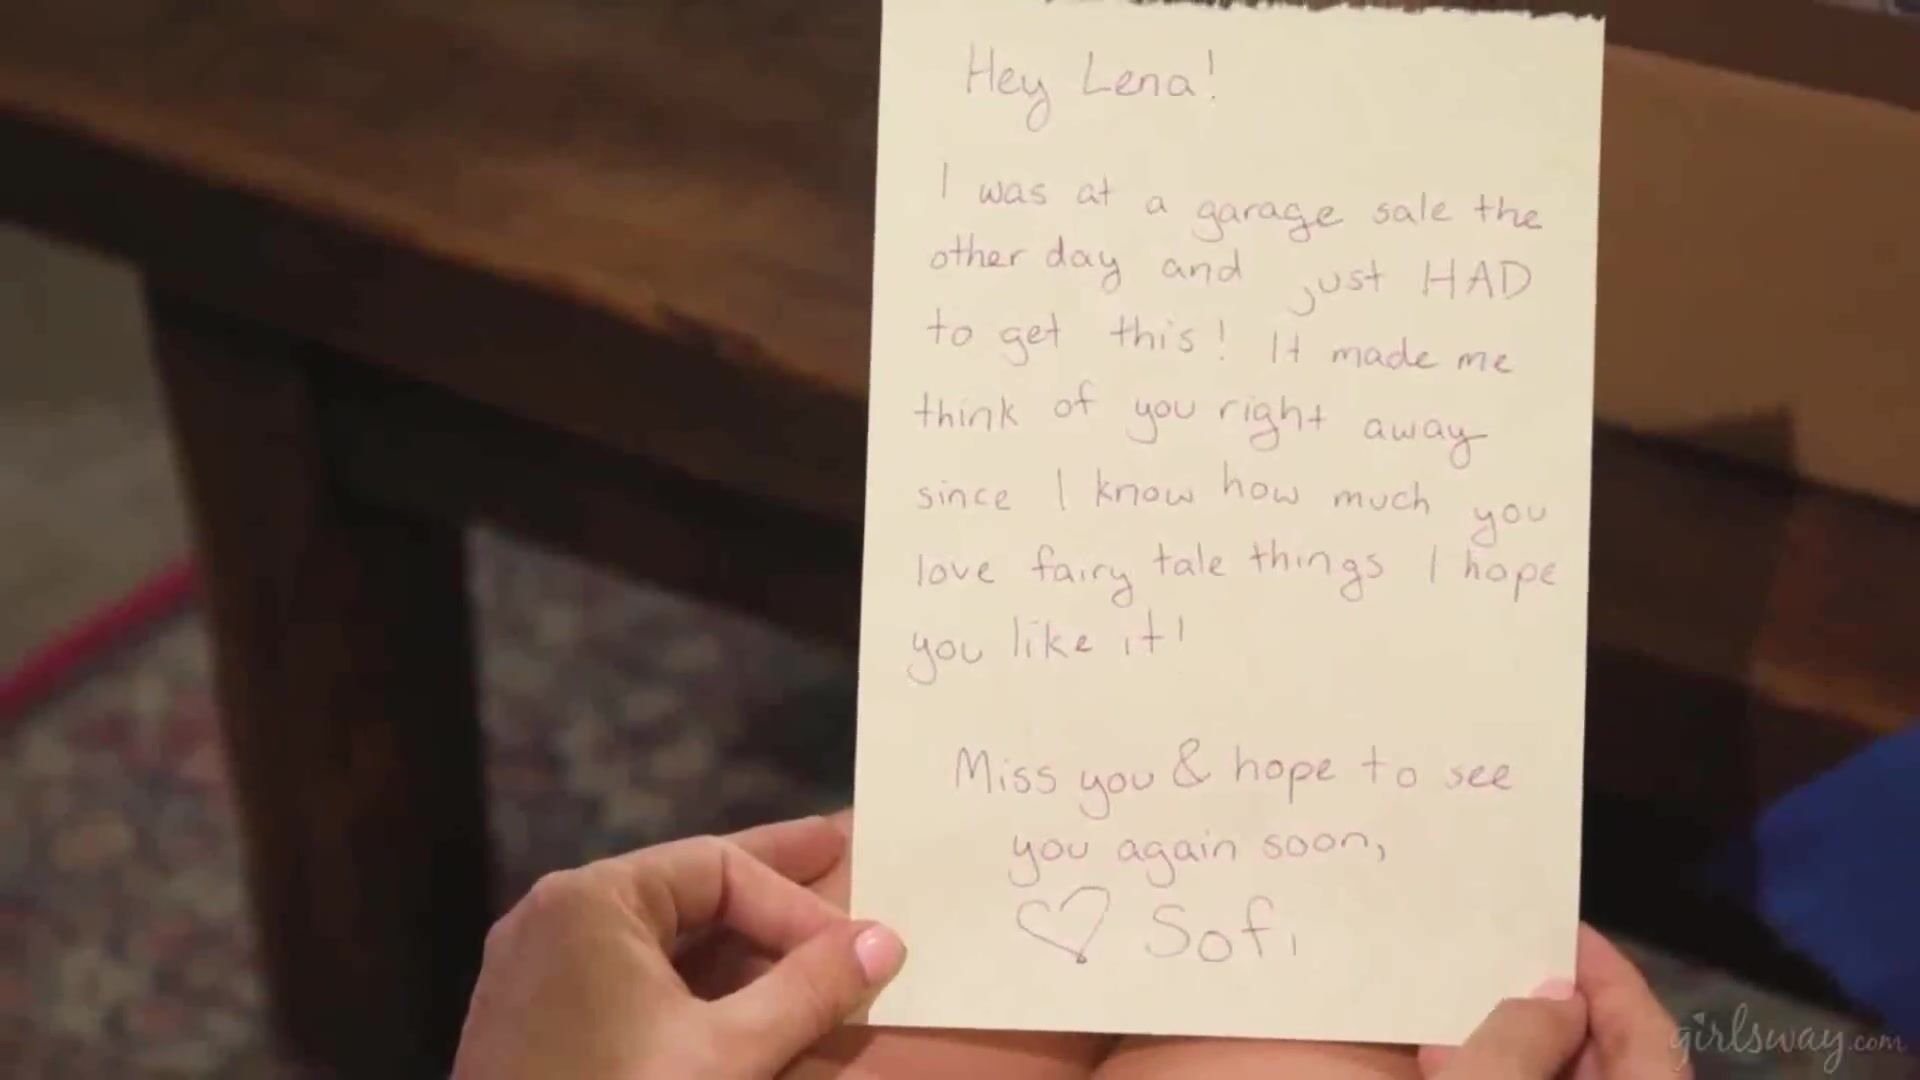 Hey Lena!
I was at a garage sale the
other day and just HAD
to get this! It made me
think of you right away
since I know how much you
love fairy tale things I hope
you like it!
Miss you & hope to see
you again soon,
♡ Sofi
girlsway.com